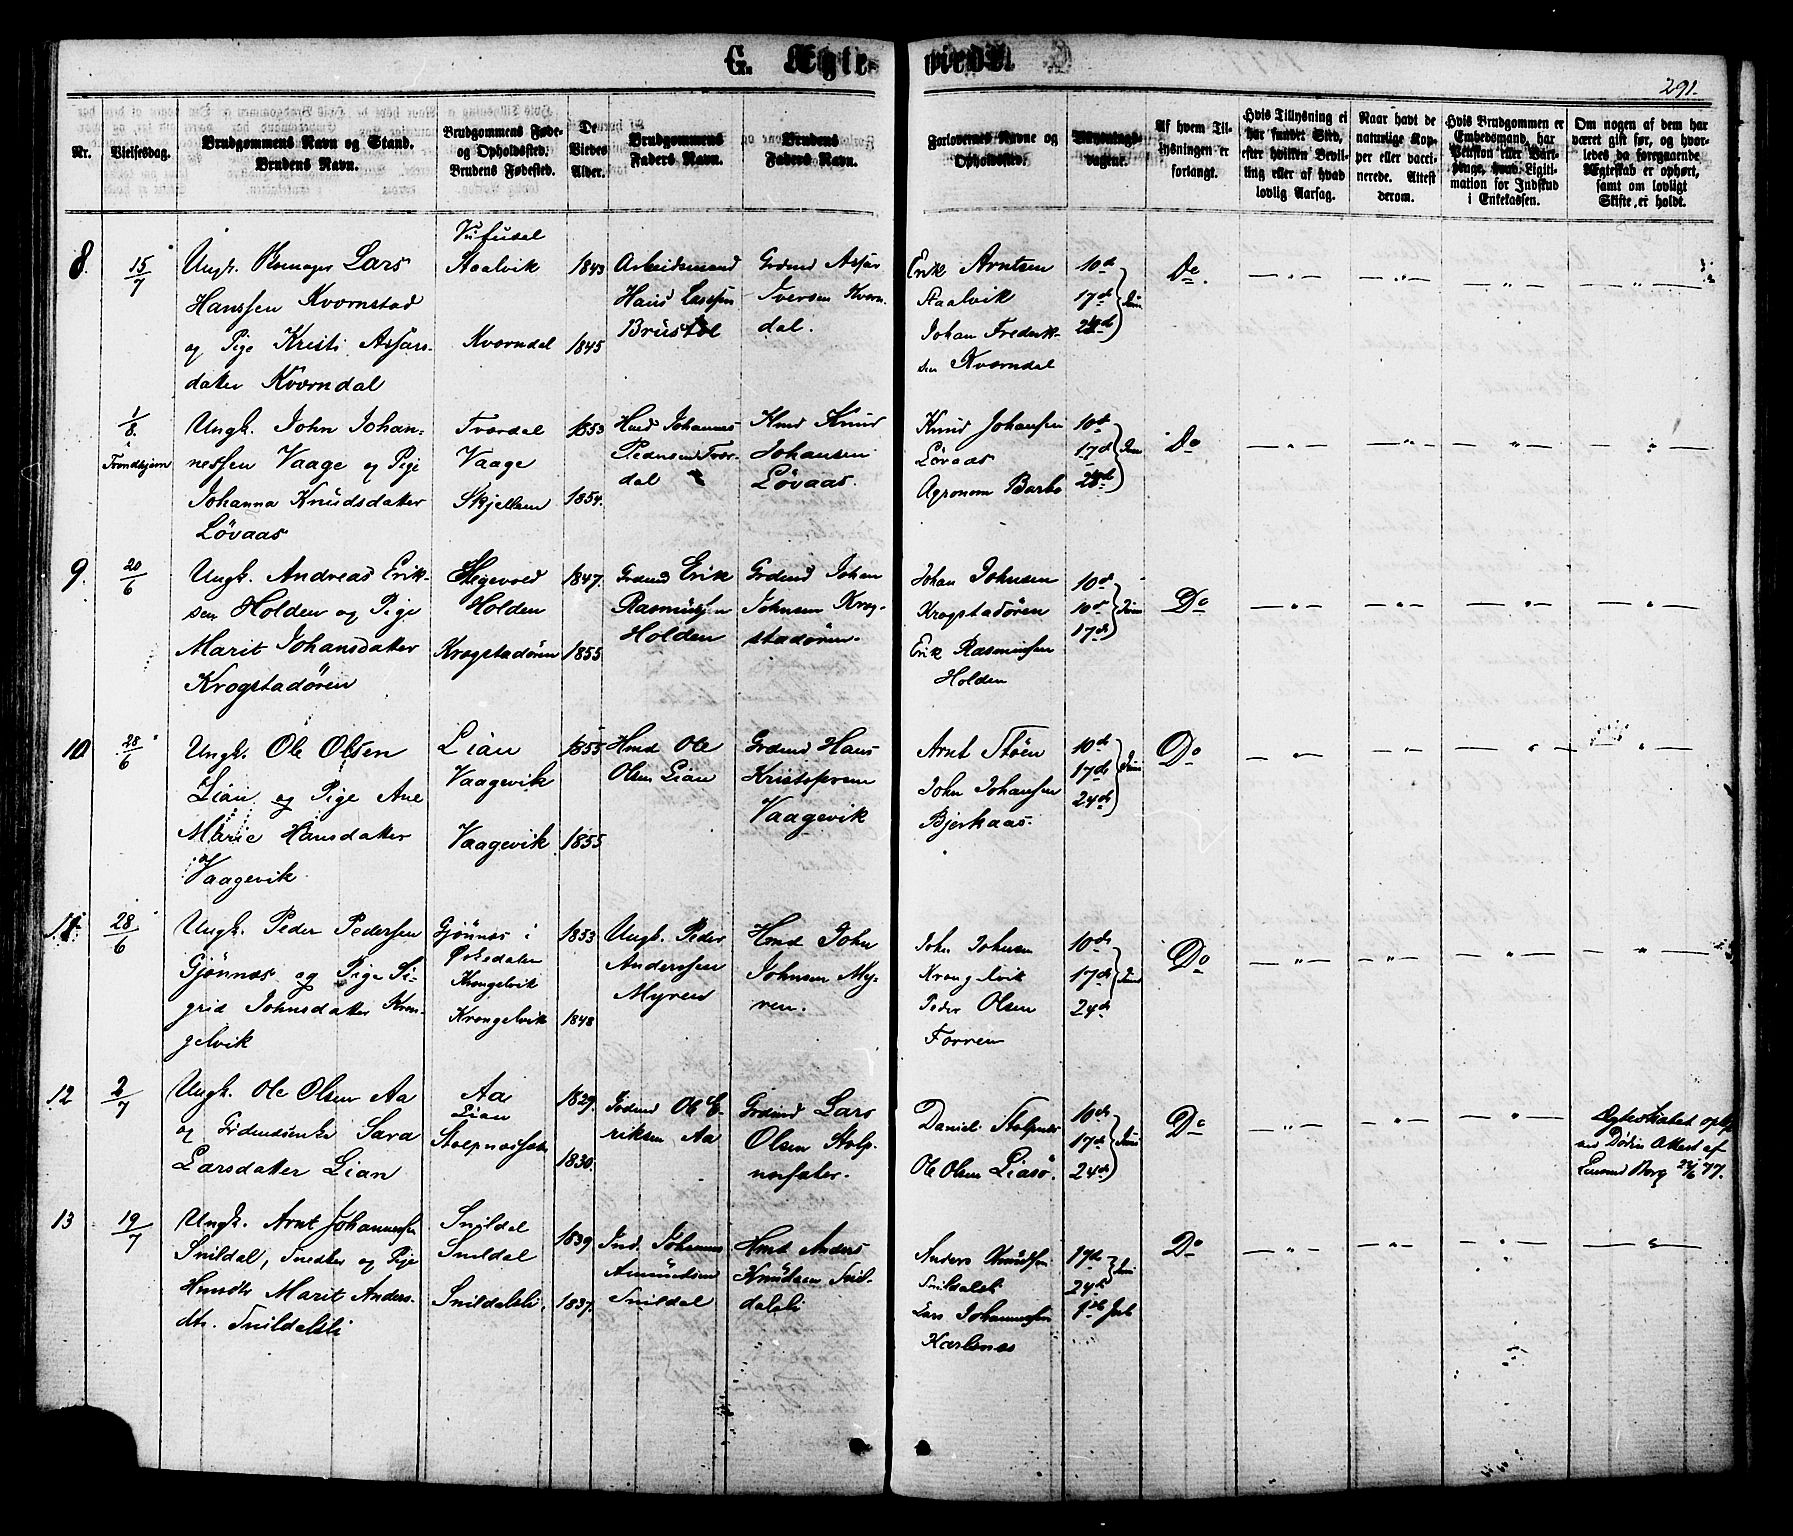 G. Ægteviede.
291.
Nr.
Vielsesdag.
Brudgommens Navn og Stand.
Brudens Navn.
Brudgommens Føde-
og Opholdssted.
Brudens Fødested.
De
Viedes
Alder.
Brudgommens
Faders Navn.
Brudens
Faders Navn.
Forlovernes Navne og
Opholdssted.
Af hvem Til-
lysningen er
forlangt.
Hvis Tillysning ei
har fundet Sted,
efter hvilken Bevil-
ling eller af hvad
lovlig Aarsag.
Naar havt de
naturlige Kop-
per eller vacci-
nerede. Attest
derom.
Hvis Brudgommen er
Embedsmand, har
Pension eller Vart-
penge, hvad Ligiti-
mation for Indskud
i Enkekassen.
Om nogen af dem har
været gift før, og hvor-
ledes da foregaaende
Ægteskab er ophørt,
samt om lovligt
Skifte er holdt.
8.
15/7
Ungk. Lars
Hanssen Kvornstad
og Pige Kristi Assars-
datter Kværndal
Staalvik
Kværndal
1843
1845
Arbeidsmand
Hans Larssen
Brustøl
Grdmd Assar
Iversen Kværn-
dal.
Erik Arntsen
Staalvik
Johan Frederik-
sen Kværndal
10de
17de
24de
Juni
Do.
1/8
i
Trondhjem
Ungk. John Johan-
nessen Vaage og Pige
Johanna Knudsdatter
Løvaas
Tværdal
Vaage
Skjellem
1853
1854.
Hmd Johannes
Pedersen Tvær-
dal
Hmd Knud
Johansen
Løvaas.
Knud Johansen
Løvaas
Agronom Barbo
10de
17de
Juni
Do
9.
20/6
Ungk. Andreas Erik-
sen Holden og Pige
Marit Johansdatter
Krogstadøren
Hegevold
Holden
Krogstadøren
1847.
1855.
Grdmd Erik
Rasmussen
Holden
Grdmd Johan
Johnsen Krog-
stadøren.
Johan Johnsen
Krogstadøren
Erik Rasmussen
Holden
10de
10de
17de
Juni
Do
10.
28/6
Ungk. Ole Olsen
Lian og Pige Ane
Marie Hansdatter
Vaagevik
Lian
Vaagevik
Vaagevik
1855
1855
Hmd Ole
Olsen Lian
Grdmd Hans
Kristofersen
Vaagevik
Arnt Støen
John Johansen
Bjerkaas.
10de
17de
24de
Juni
Do
11.
28/6
Ungk. Peder Pedersen
Gjønnes og Pige Si-
grid Johnsdatter Kren-
gelvik
Gjønnes i
Krongelvik
Krongelvik
1853
1848
Ungk. Peder
Anderssen
Myren
Hmd John
Johnsen My-
ren.
John Johnsen
Krongelvik
Peder Olsen
Forren
10de
17de
24de
Juni
Do
12
2/7
Ungk. Ole Olsen Aa
og Grdmdsenke Sara
Larsdatter Lian
Aa
Lian
Stolpnessæter
1829.
1830.
Grdmd Ole E-
riksen Aa
Grdmd Lars
Olsen Stolp-
nessæter.
Daniel Stolpnes
Ole Olsen Liasø.
10de
17de
24de
Juni
Do
Ægteskabet opløst
ved Døden Attest af
Lensmd Borg 24/6 77.
13
19/7
Ungk. Arnt Johannessen
Snildal, Snedker og Pige
Hmdsdtr Marit Anders-
dtr. Snildalsli
Snildal
Snildal
Snildalsli.
1839
1837.
Ind. Johannes
Amundsen
Snildal
Hmd Anders
Knudsen Snil-
dalsli
Anders Knudsen
Snildalsli
Lars Johannessen
Karlsnes
17de
24de
Juni
1ste Juli
Do